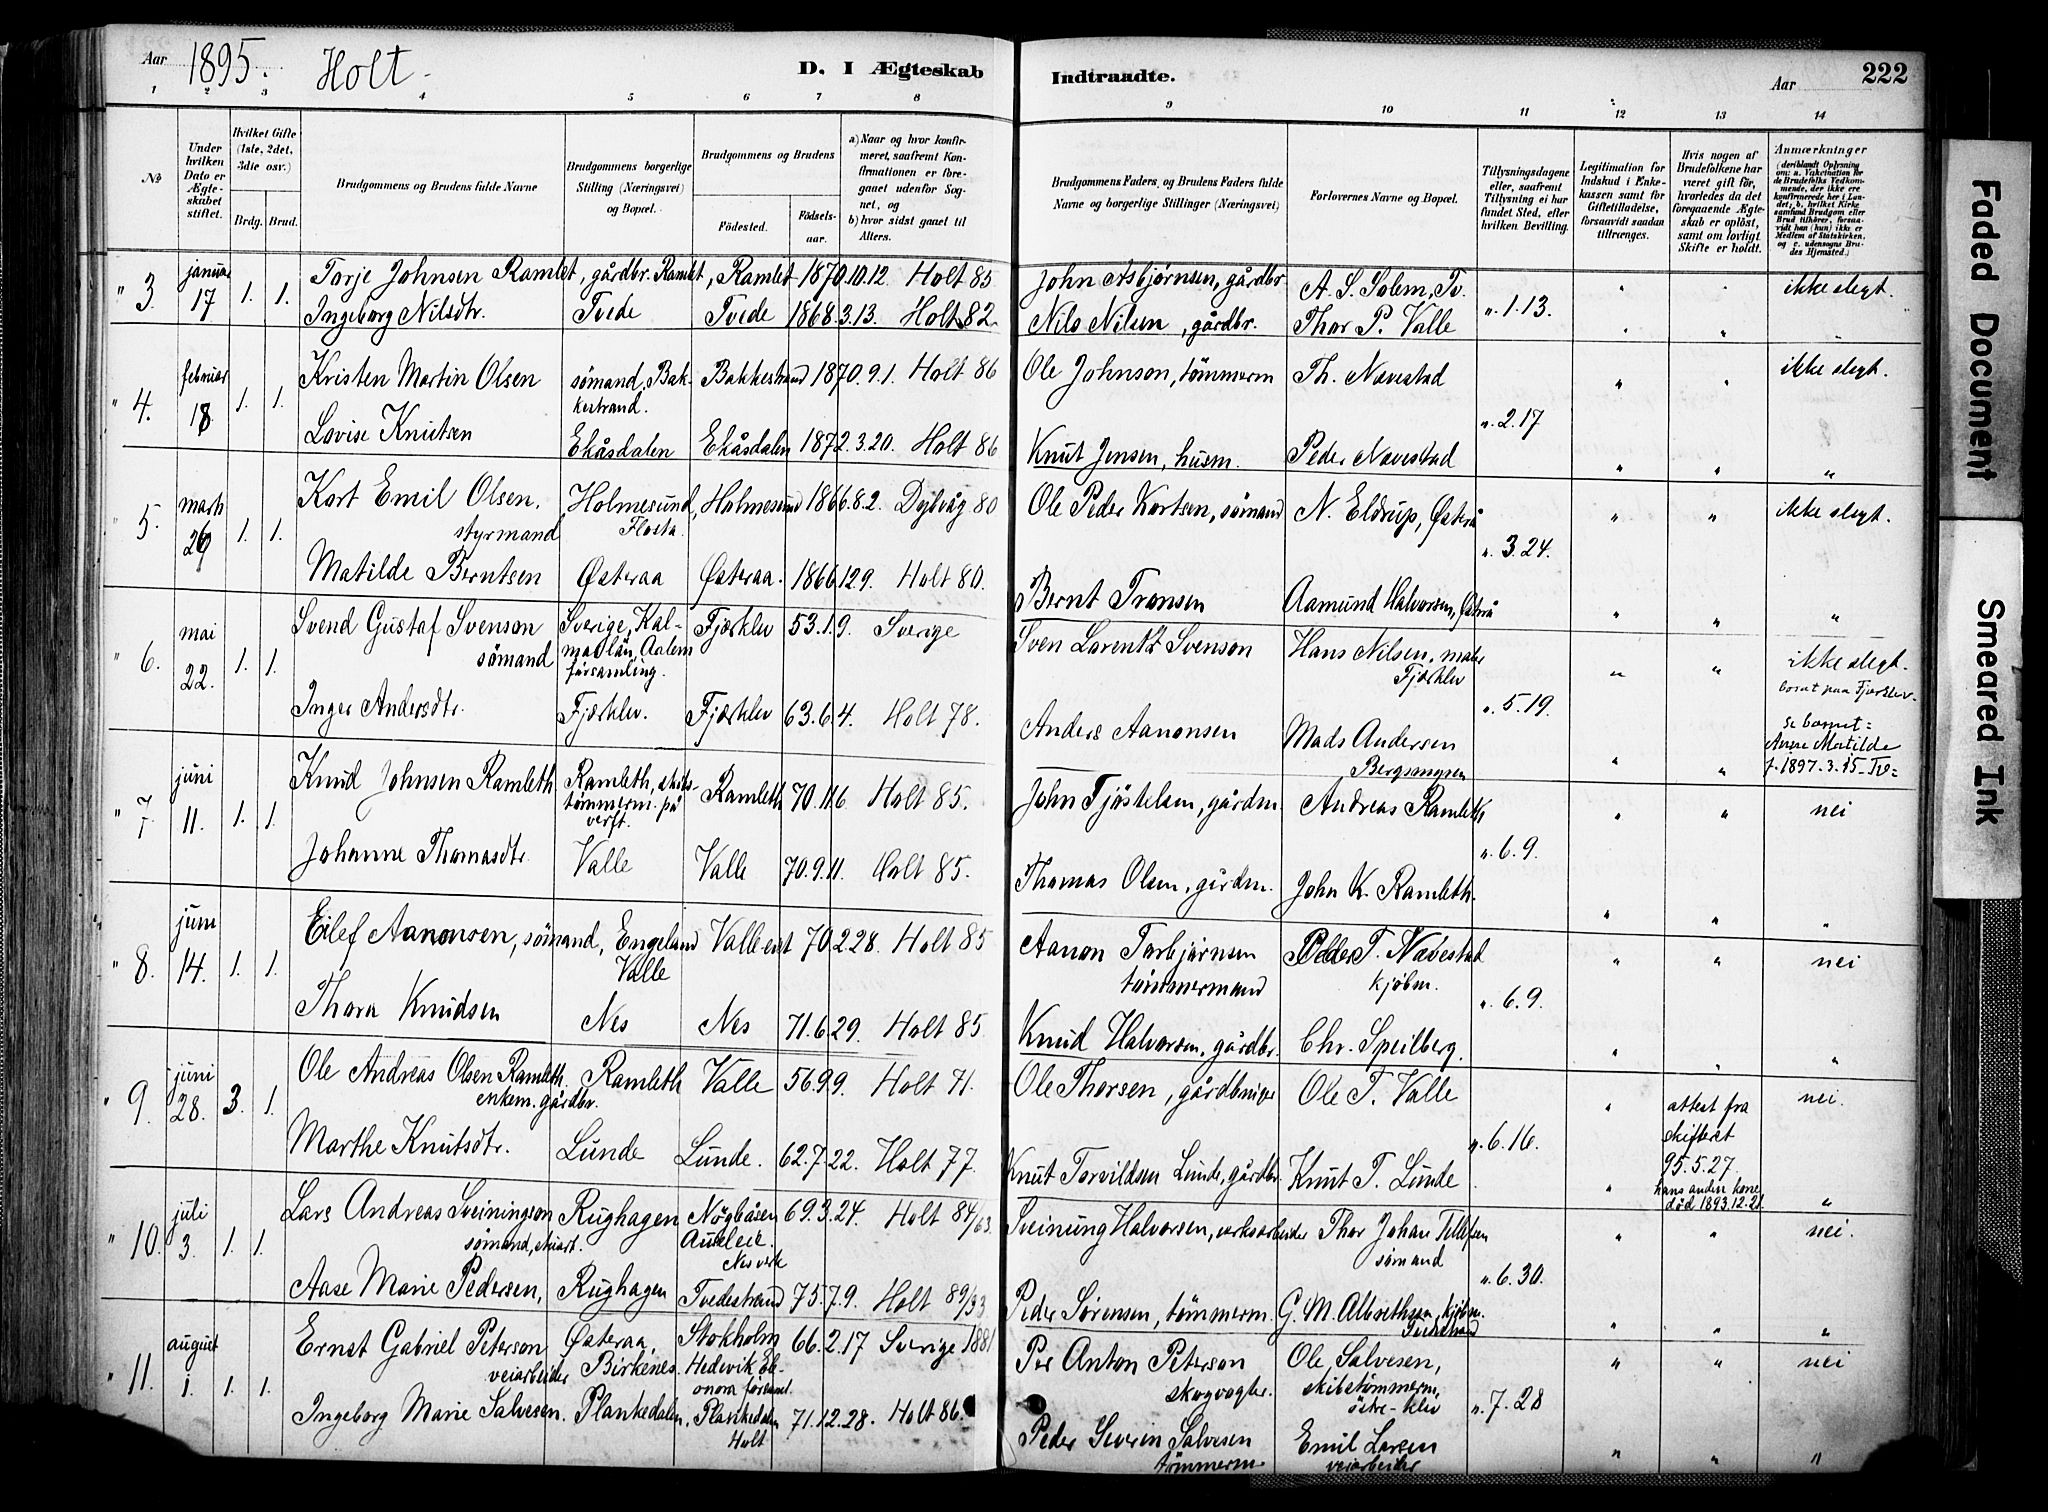 Aar 1895. Holt. D. I Ægteskab Indtraadte. Aar 222
1 2 3 4 5 6 7 8 9 10 11 12 13 14
№
Under hvilken Dato er Ægteskabet stiftet.
Hvilket Gifte (1ste, 2det, 3die osv.)
Brdg. Brud.
Brudgommens og Brudens fulde Navne
Brudgommens borgerlige Stilling (Næringsvei) og Bopæl.
Brudgommens og Brudens
Fødested. Fødselsaar.
a) Naar og hvor konfirmeret, saafremt Konfirmationen er foregaaet udenfor Sognet, og
b) hvor sidst gaaet til Alters.
Brudgommens Faders og Brudens Faders fulde Navne og borgerlige Stillinger (Næringsvei)
Forlovernes Navne og Bopæl.
Tillysningsdagene eller, saafremt Tillysning ei har fundet Sted, efter hvilken Bevilling.
Legitimation for Indskud i Enkekassen samt for Giftetilladelse, forsaavidt saadan tiltrænges.
Hvis nogen af Brudefolkene har været gift før, hvorledes da det foregaaende Ægteskab er opløst, samt om lovligt Skifte er holdt.
Anmærkninger (deriblandt Oplysning om: a. Vaksination for de Brudefolks Vedkommende, der ikke ere konfirmerede her i Landet; b. hvilket Kirkesamfund Brudgom eller Brud tilhører, forsaavidt han (hun) ikke er Medlem af Statskirken, og c. udensogns Brudes Hjemsted.)
" 3. januar 17 1. 1. Torje Johnsen Ramlet, gårdbr. Ramlet, Ramlet 1870.10.12. Holt 85 John Asbjørnsen, gårdbr. A. S. Solem, Tv. ". 1. 13. " " ikke slegt.
Ingeborg Nilsdtr. Tvede Tvede 1868.3.13. Holt 82. Nils Nilsen, gårdbr. Thor P. Valle " " "
" 4. februar 18 1. 1. Kristen Martin Olsen sømand, Bakkestrand. Bakkestrand 1870.9.1. Holt 86 Ole Johnson, tömmerm Th. Nævestad ". 2. 17 " " ikke slegt.
Lovise Knutsen Ekåsdalen Ekåsdalen 1872.3.20. Holt 86 Knut Jensen, husm. Peder Navestad " " "
" 5. marts 29 1. 1. Kort Emil Olsen. styrmand Holmesund, Flosta. Holmesund 1866.8.2. Dybvåg 80 Ole Peder Kortsen, sømand N. Eldrup, Østerå ". 3. 24. " " ikke slegt.
Matilde Berntsen Østeraa Østeraa. 1866.12.9. Holt 80. Bernt Tronsen Aamund Halvorsen, Østerå " " "
" 6. mai 22. 1. 1. Svend Gustaf Svenson sømand Sverige, Kalmar län, Aalem församling. Fjærklev 53.1.9. Sverige Sven Larentz Svenson Hans Nilsen, maler Fjærklev ". 5. 19. " " ikke slegt. bosat paa Fjærklev.
Inger Andersdtr. Fjærklev. Fjærklev 63.6.4. Holt 78. Anders Aanonsen Mads Andersen Bergsmyren " " se barnet: Anne Matilde f. 1897.3.15
" 7. juni 11. 1. 1. Knud Johnsen Ramleth Ramleth, skibstømmerm. på verft. Ramleth 70.11.6 Holt 85. John Tjöstelsen, gårdm. Andreas Ramleth ". 6. 9. " " nei
Johanne Thomasdtr. Valle Valle 70.9.11. Holt 85. Thomas Olsen, gårdm. John K. Ramleth. " " "
" 8. juni 14. 1. 1. Eilef Aanonsen, sömand, Engeland Valle Valle 70.2.28. Holt 85 Aanon Torbjørnsen tömmermand Peder T. Navestad kjöbm. ". 6. 9. " " nei
Thora Knudsen Nes Nes 71.6.29. Holt 85 Knud Halvorsen, gårdbr. Chr. Speilberg. " " "
" 9. juni 28. 3. 1. Ole Andreas Olsen Ramleth. enkem. gårdbr. Ramleth Valle 56.9.9. Holt 71. Ole Thorsen, gårdbruger Ole T. Valle ". 6. 16. " attest fra skifteret 95.5.27. nei.
Marthe Knutsdtr. Lunde Lunde. 62.7.22. Holt 77. Knut Torvildsen Lunde, gårdbr. Knut T. Lunde " hans anden kone död 1893.12.21. "
" 10. juli 3. 1. 1. Lars Andreas Sveiningson sømand, stuart. Rughagen Nes verk 69.3.24. Holt 84/63 Sveinung Halvorsen, verksarbeider Thor Johan Tellefsen sømand ". 6. 30. " " nei.
Aase Marie Pedersen, Rughagen Tvedestrand 75.7.9. Holt 89/33 Peder Sørensen, tømmerm. G. M. Albrethson, kjöbm. " " "
" 11. august 1. 1. 1. Ernst Gabriel Peterson veiarbeider Østeraa, Birkenes. Stokholm Hedevik Eleonora forsaml. 66.2.17 Sverige 1881 Per Anton Peterson skogvogter. Ole Salvesen, skibstømmerm, östre-klev ". 7. 28 " " nei
Ingeborg Marie Salvesen. Plankedalen, Plankedalen Holt 71.12.28. Holt 86. Peder Severin Salvesen tömmerm Emil Larsen veiarbeider " " "
Faded Document
Smeared Ink